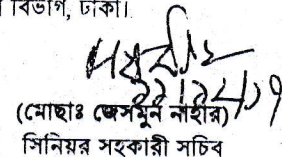 বিভাগ, ঢাকা।
(মোছাঃ জেসমুন নাহার)
সিনিয়র সহকারী সচিব